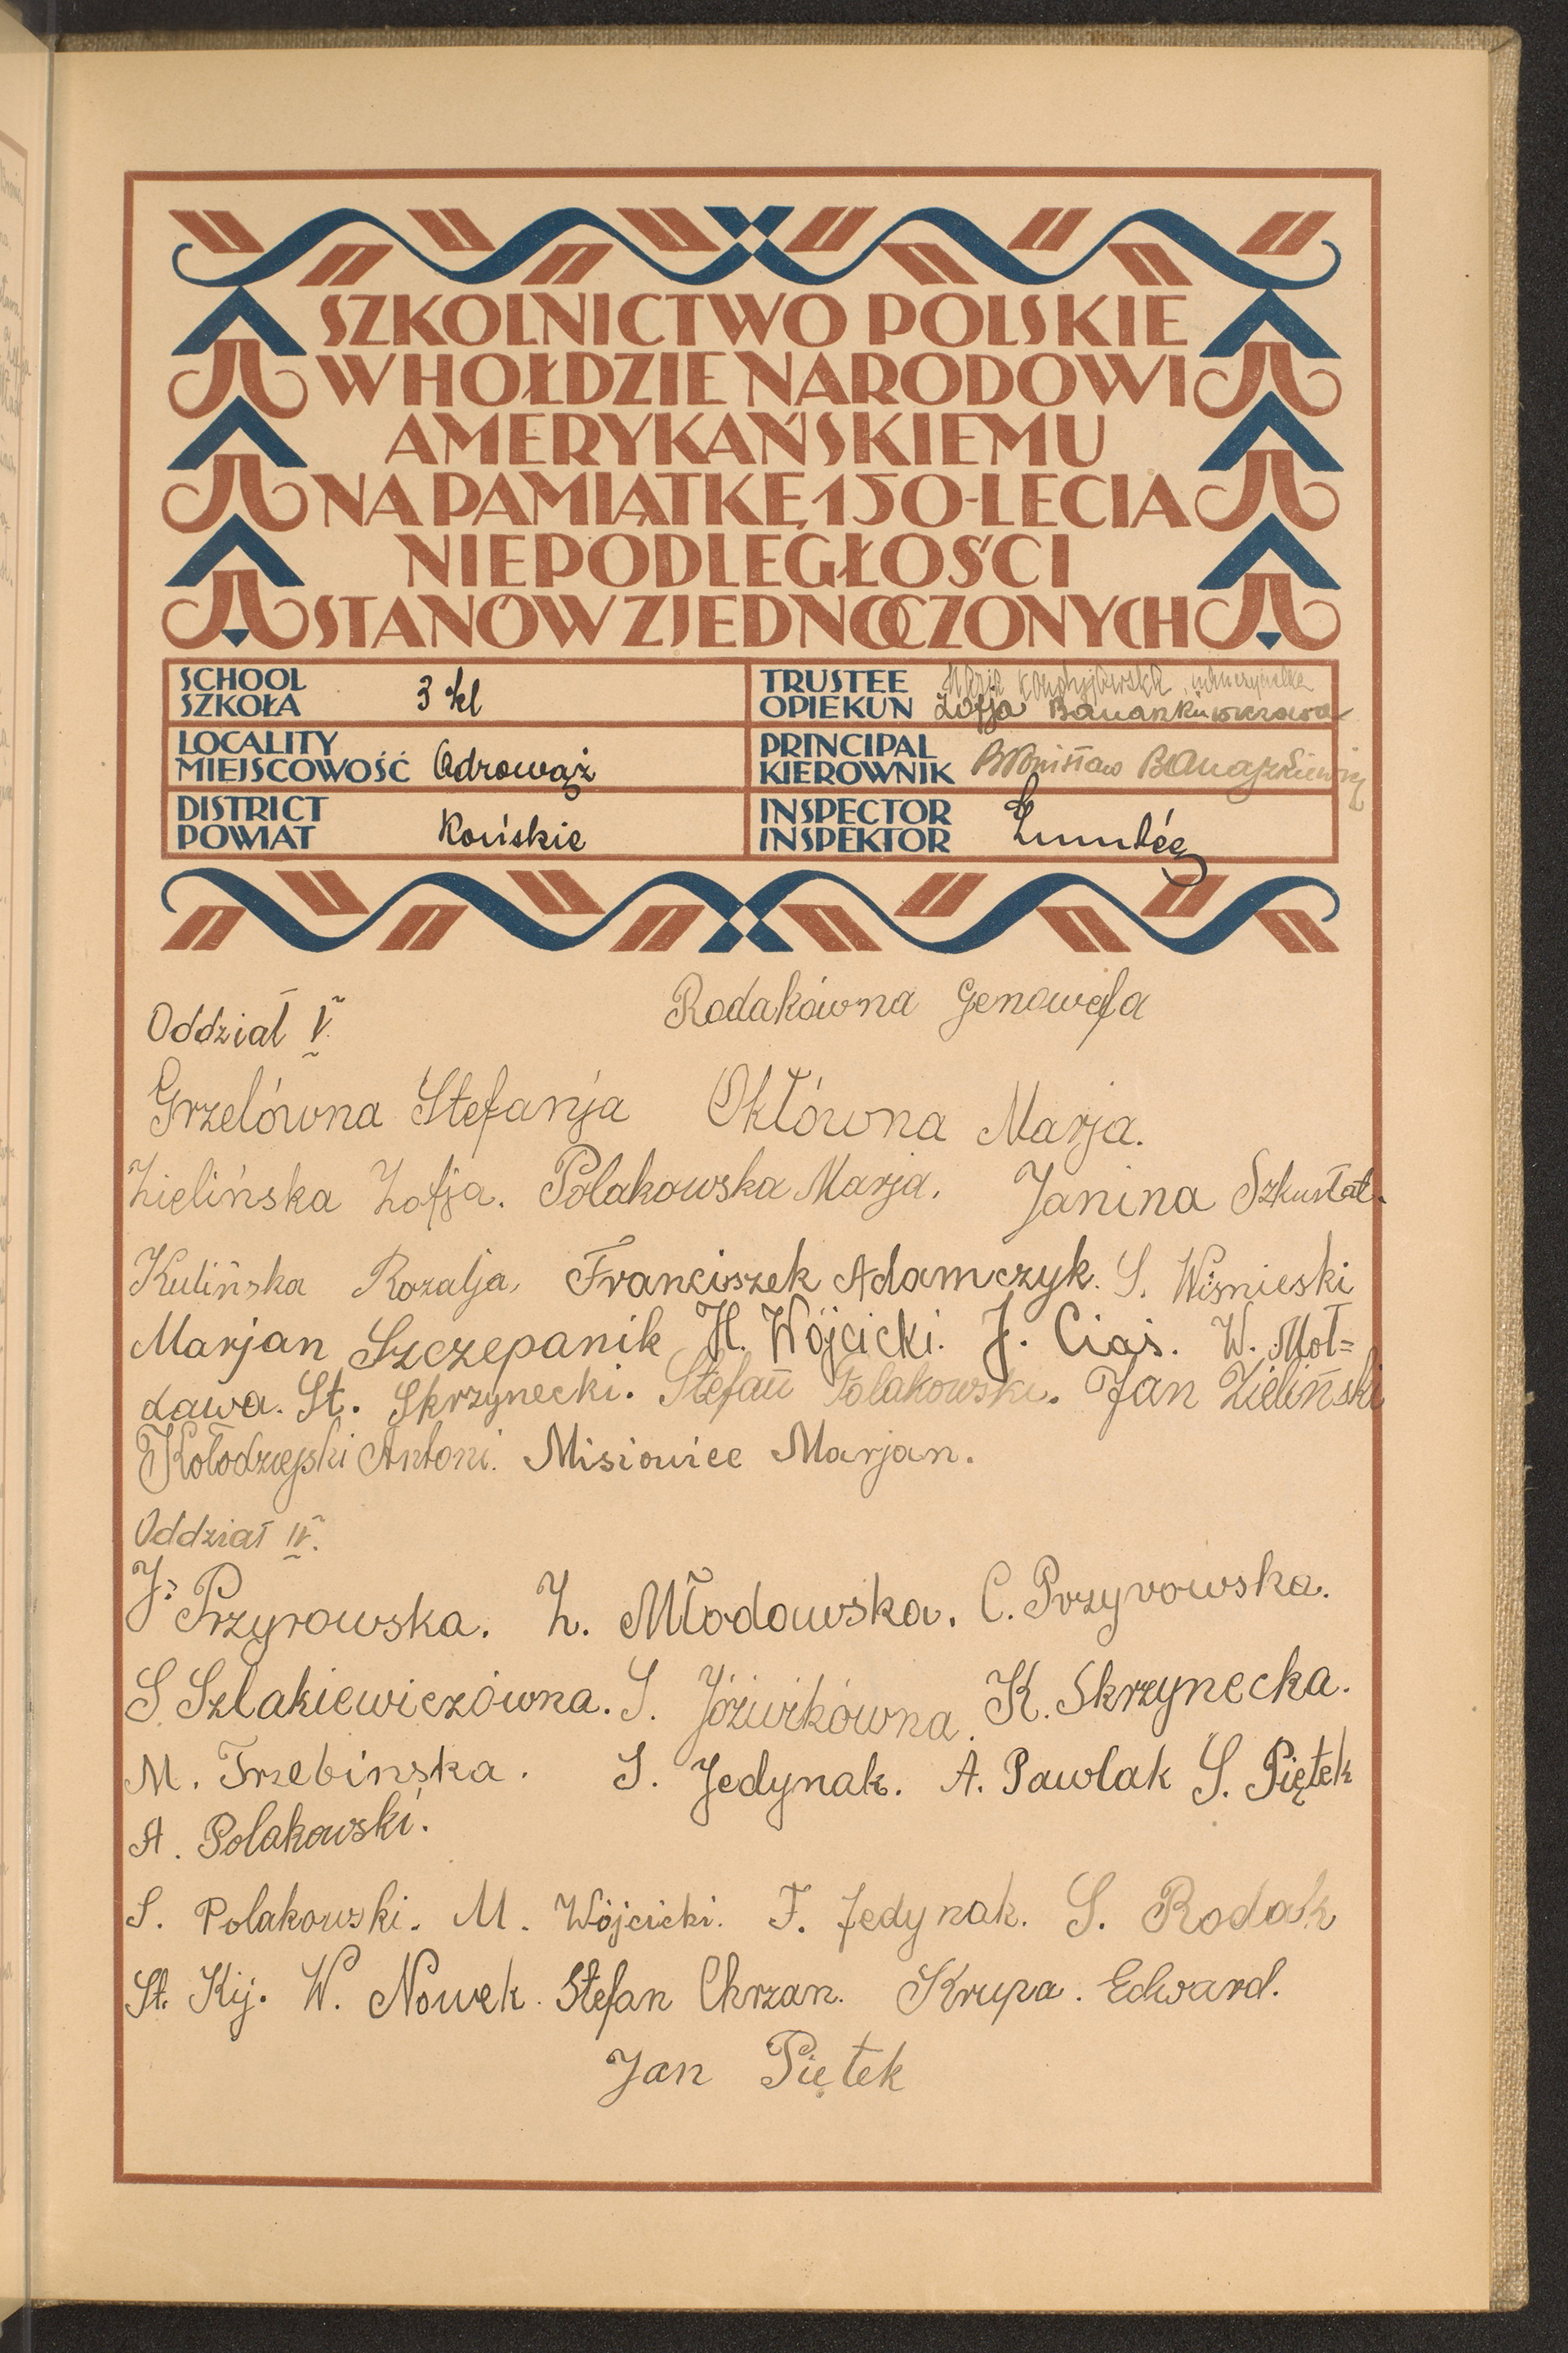 SZKOLNICTWO POLSKIE
W HOŁDZIE NARODOWI
AMERYKAŃSKIEMU
NA PAMIĄTKĘ 150-LECIA
NIEPODLEGŁOŚCI
STANÓW ZJEDNOCZONYCH
SCHOOL
SZKOŁA 3 kl
TRUSTEE Marja
OPIEKUN Zofja
LOCALITY
MIEJSCOWOŚĆ Odrowąż
PRINCIPAL
KIEROWNIK Bronisław Banaszkiewicz
DISTRICT
POWIAT Końskie
INSPECTOR
INSPEKTOR
Oddział V.
Rodakówna Genowefa
Grzelówna Stefanja Októwna Marja.
Zielińska Zofja. Polakowska Marja. Janina Szkurłat.
Kulińska Rozalja, Franciszek Adamczyk. S. Wiśnieski
Marjan Szczepanik H. Wójcicki. J. Ciaś. W. Moł=
dawa. St. Skrzynecki. Stefan Polakowski. Jan Zieliński
Kołodziejski Antoni. Misiowiec Marjan.
Oddział IV.
J. Przyrowska. Z. Młodowska. C. Przyrowska.
S. Szlakiewiczówna. S. Jóźwikówna. K. Skrzynecka.
M. Trzebinska. S. Jedynak. A. Pawlak S. Piętek
A. Polakowski.
S. Polakowski. M. Wójcicki. F. Jedynak. S. Rodak
St. Kij. W. Nowek. Stefan Chrzan. Krupa. Edward.
Jan Piętek